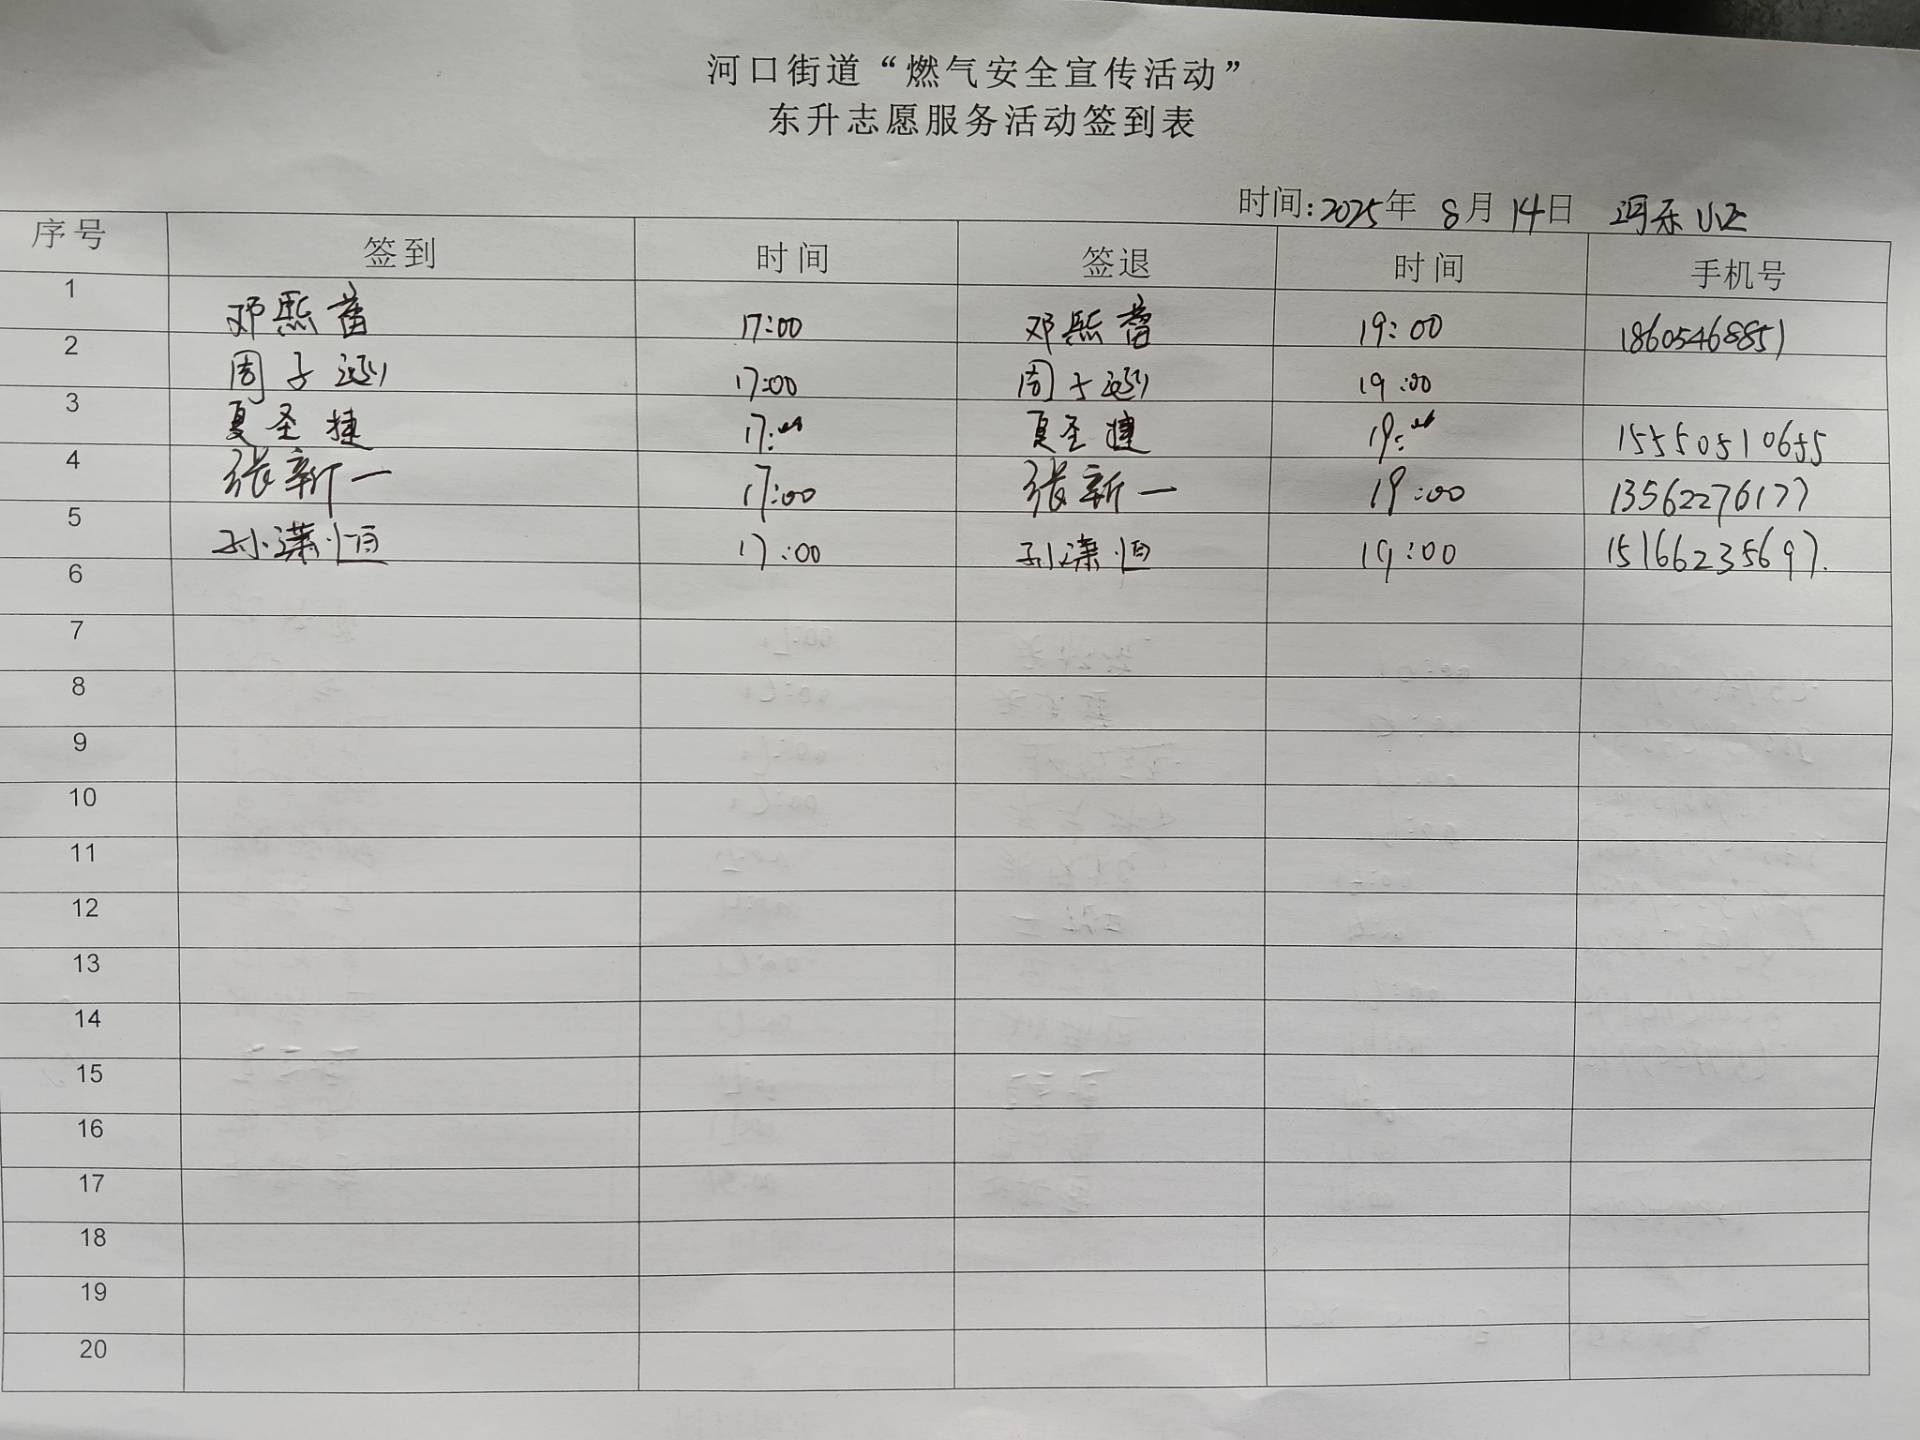 河口街道“燃气安全宣传活动”
东升志愿服务活动签到表
时间:2025年 8月 14日 河乐小区
序号 签到 时间 签退 时间 手机号
1 邓熙蕾 17:00 邓熙蕾 19:00 18605468851
2 周子逊 17:00 周子逊 19:00
3 夏圣捷 17:00 夏圣捷 19:00 15550510655
4 张新一 17:00 张新一 19:00 13562276177
5 孙潇恒 17:00 孙潇恒 19:00 15166235697.
6
7
8
9
10
11
12
13
14
15
16
17
18
19
20